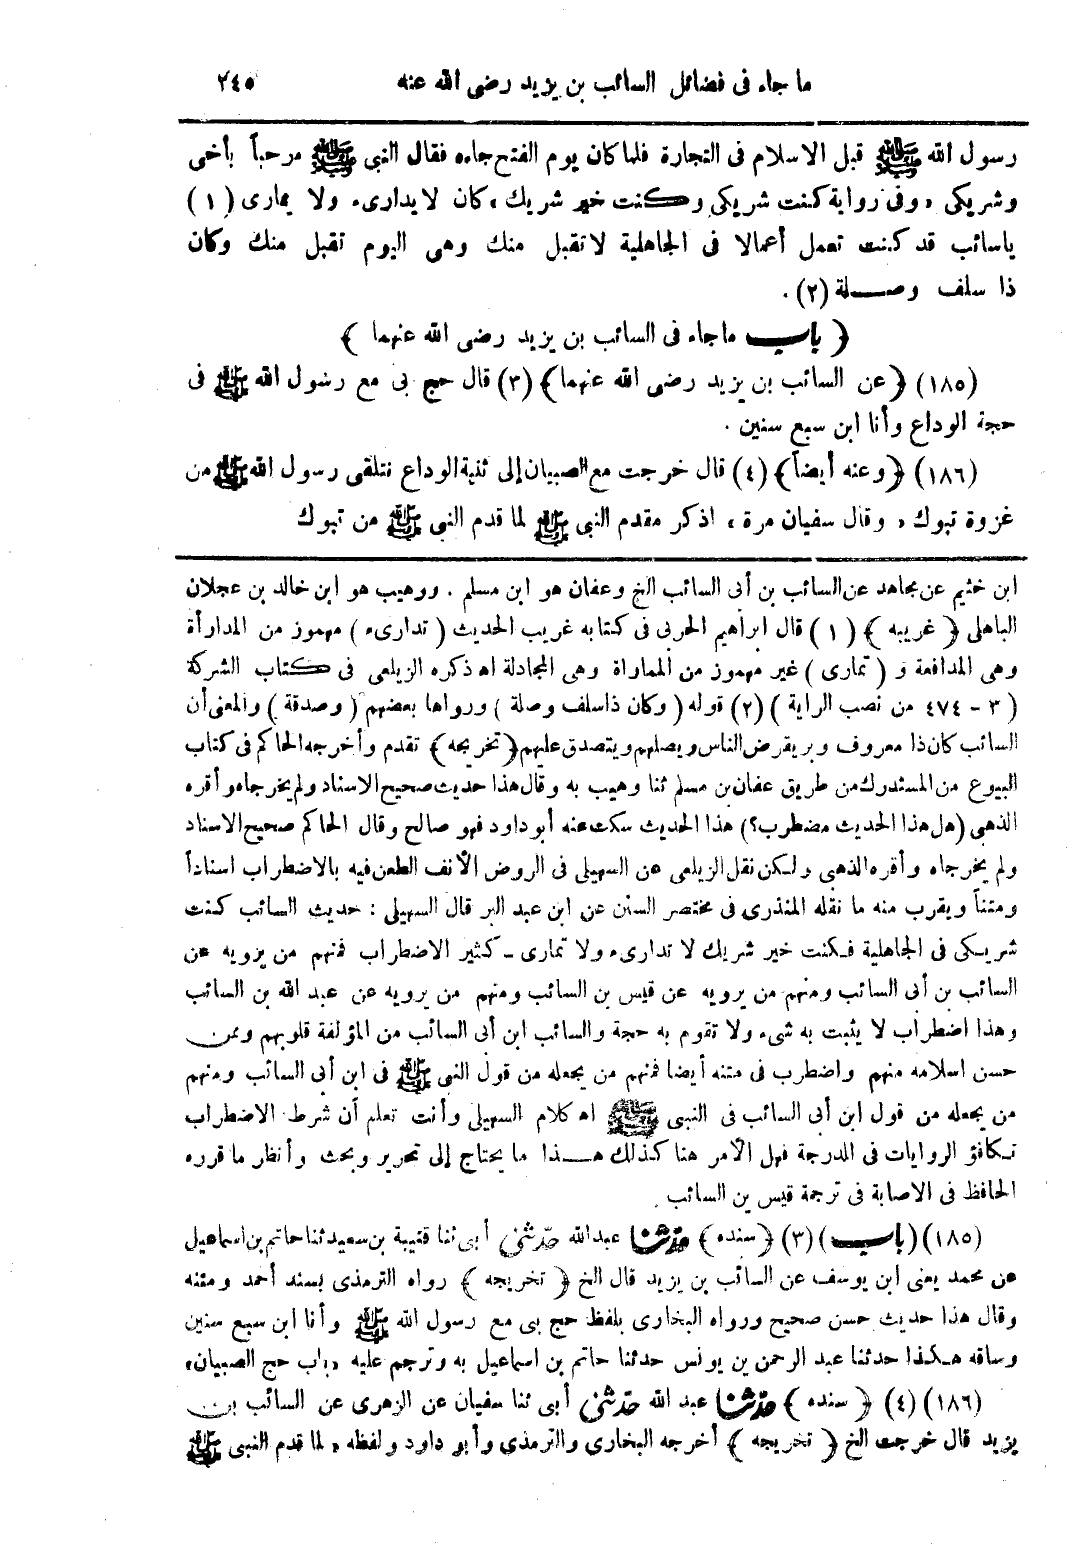 ما جاء فى فضائل السائب بن يزيد رضى الله عنه ٢٤٥
رسول الله ﷺ قبل الاسلام فى التجارة فلما كان يوم الفتح جاءه فقال النبى ﷺ مرحباً بأخى
وشريكى «وفى رواية كنت شريكى وكنت خير شريك» كان لا يدارىء ولا يمارى (١)
ياسائب قد كنت تعمل أعمالا فى الجاهلية لا تقبل منك وهى اليوم تقبل منك وكان
ذا سلف وصلة (٢) .
﴿ باب ماجاء فى السائب بن يزيد رضى الله عنهما ﴾
(١٨٥) ﴿عن السائب بن يزيد رضى الله عنهما﴾ (٣) قال حج بى مع رسول الله ﷺ فى
حجة الوداع وأنا ابن سبع سنين .
(١٨٦) ﴿وعنه أيضاً﴾ (٤) قال خرجت مع الصبيان إلى ثنية الوداع نتلقى رسول الله ﷺ من
غزوة تبوك ، وقال سفيان مرة ، اذكر مقدم النبى ﷺ لما قدم النبى ﷺ من تبوك
ابن خثيم عن مجاهد عن السائب بن أبى السائب الخ وعفان هو ابن مسلم . ووهيب هو ابن خالد بن عجلان
الباهلى ﴿ غريبه ﴾ (١) قال ابراهيم الحربى فى كتابه غريب الحديث ( تدارىء ) مهموز من المدارأة
وهى المدافعة و ( تمارى ) غير مهموز من المماراة وهى المجادلة اه ذكره الزيلعى فى كتاب الشركة
( ٣ - ٤٧٤ من نصب الراية ) (٢) قوله ( وكان ذا سلف وصلة ) ورواها بعضهم ( وصدقة ) والمعنى أن
السائب كان ذا معروف وبر يقرض الناس ويصلهم ويتصدق عليهم ﴿تخريجه﴾ تقدم وأخرجه الحاكم فى كتاب
البيوع من المستدرك من طريق عفان بن مسلم ثنا وهيب به وقال هذا حديث صحيح الاسناد ولم يخرجاه وأقره
الذهبى (هل هذا الحديث مضطرب؟) هذا الحديث سكت عنه أبو داود فهو صالح وقال الحاكم صحيح الاسناد
ولم يخرجاه وأقره الذهبى ولكن نقل الزيلعى عن السهيلى فى الروض الأنف الطعن فيه بالاضطراب اسناداً
ومتناً ويقرب منه ما نقله المنذرى فى مختصر السنن عن ابن عبد البر قال السهيلى : حديث السائب كنت
شريكى فى الجاهلية فكنت خير شريك لا تدارىء ولا تمارى - كثير الاضطراب فمنهم من يرويه عن
السائب بن أبى السائب ومنهم من يرويه عن قيس بن السائب ومنهم من يرويه عن عبد الله بن السائب
وهذا اضطراب لا يثبت به شىء ولا تقوم به حجة والسائب ابن أبى السائب من المؤلفة قلوبهم وممن
حسن اسلامه منهم واضطرب فى متنه أيضا فمنهم من يجعله من قول النبى ﷺ فى ابن أبى السائب ومنهم
من يجعله من قول ابن أبى السائب فى النبى ﷺ اه كلام السهيلى وأنت تعلم أن شرط الاضطراب
تكافؤ الروايات فى الدرجة فهل الأمر هنا كذلك هذا ما يحتاج إلى تحرير وبحث وأنظر ما قرره
الحافظ فى الاصابة فى ترجمة قيس بن السائب .
(١٨٥) (باب) (٣) ﴿سنده﴾ حدثنا عبدالله حدثنى أبى ثنا قتيبة بن سعيد ثنا حاتم بن اسماعيل
عن محمد يعنى ابن يوسف عن السائب بن يزيد قال الخ ﴿ تخريجه ﴾ رواه الترمذى بسند أحمد ومتنه
وقال هذا حديث حسن صحيح ورواه البخارى بلفظ حج بى مع رسول الله ﷺ وأنا ابن سبع سنين
وساقه هكذا حدثنا عبد الرحمن بن يونس حدثنا حاتم بن اسماعيل به وترجم عليه «باب حج الصبيان»
(١٨٦) (٤) ﴿ سنده ﴾ حدثنا عبد الله حدثنى أبى ثنا سفيان عن الزهرى عن السائب بن
يزيد قال خرجت الخ ﴿ تخريجه ﴾ أخرجه البخارى والترمذى وأبو داود ولفظه « لما قدم النبى ﷺ